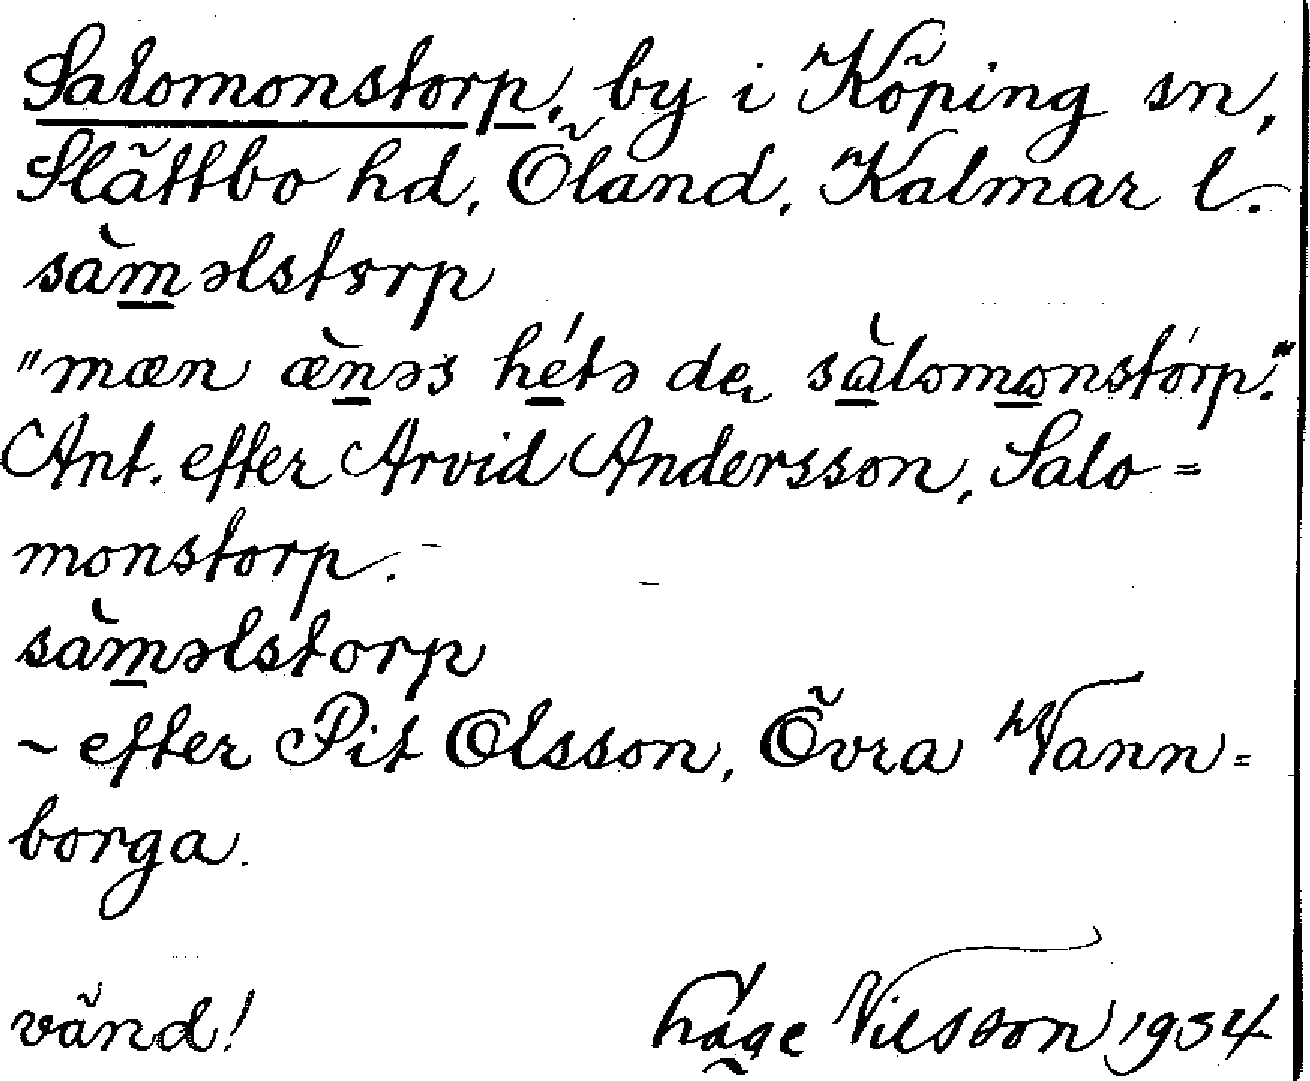 Salomonstorp, by i Köping sn,
Slättbo hd, Öland, Kalmar l.
sàməlstorp
"mæn æ̀nəs hétə de sàlomonstórp."
Ant. efter Arvid Andersson, Salo=
monstorp.
sàməlstorp
~ efter Pit Olsson, Övra Vann=
borga.
vänd! Håge Nilsson 1934